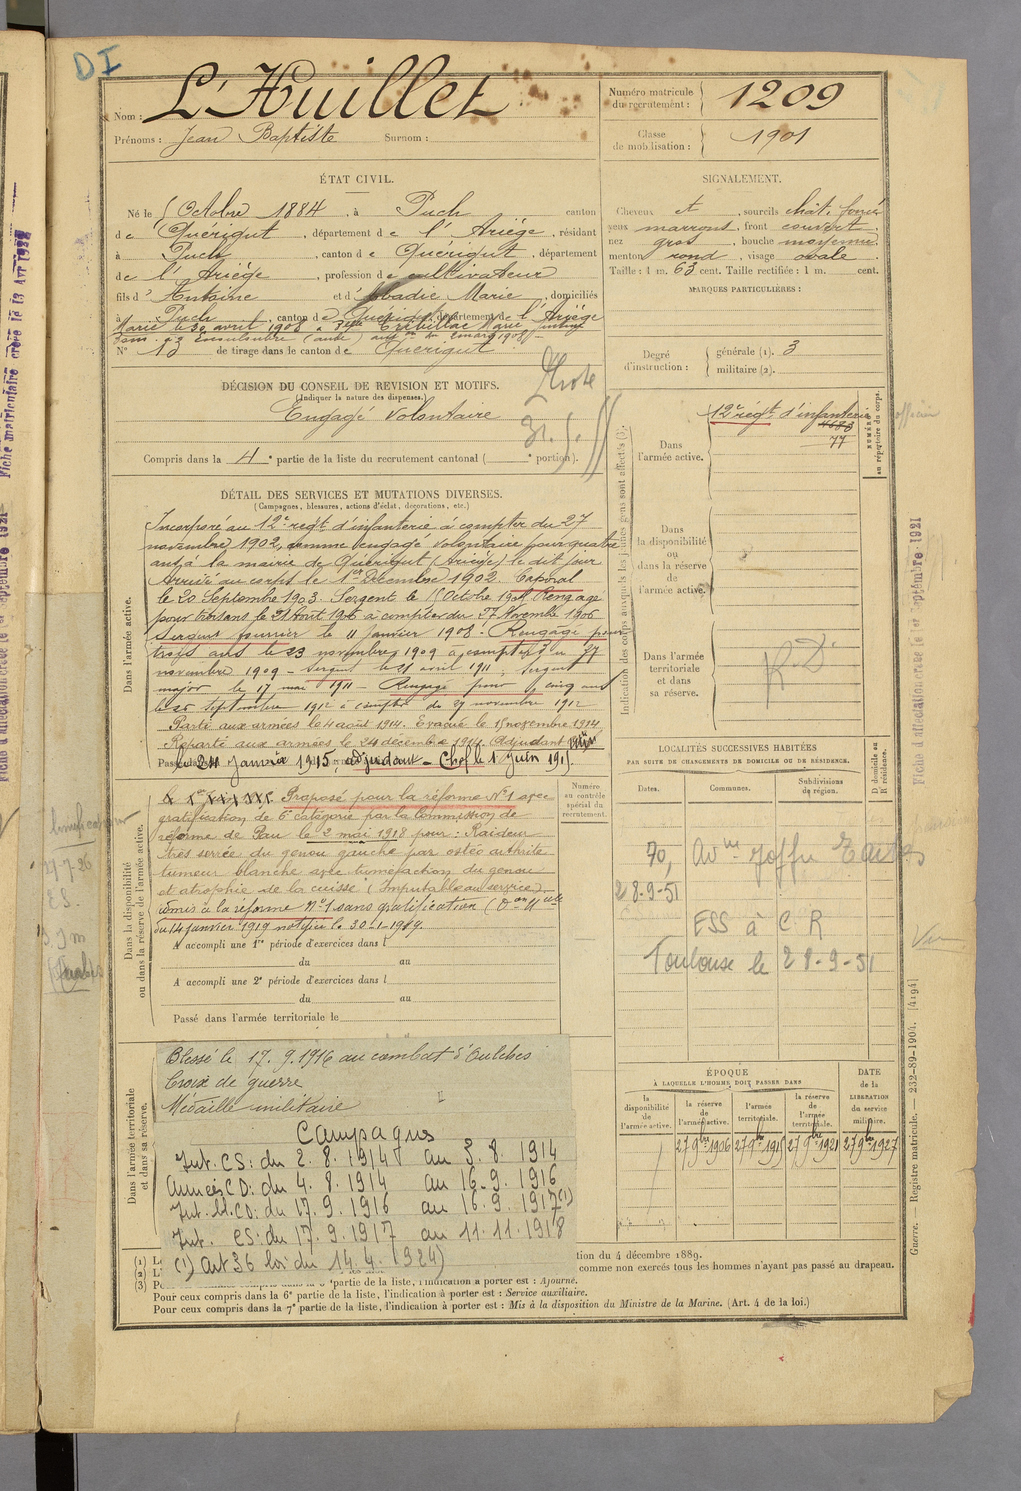 DI
Nom : L'Huillet
Prénoms : Jean Baptiste Surnom :
Numéro matricule du recrutement : 1209
Classe de mobilisation : 1901
ÉTAT CIVIL.
Né le 5 Octobre 1884, à Puch canton
de Quérigut, département de l'Ariège, résidant
à Puch, canton de Quérigut, département
de l'Ariège, profession de cultivateur
fils d'Antoine et d'Abadie Marie, domiciliés
à Puch, canton de Quérigut, département de l'Ariège
Marié le 30 avril 1908 à Trebillac Marie
N° 13 de tirage dans le canton de Quérigut
SIGNALEMENT.
Cheveux et, sourcils chât. foncé
yeux marrons, front couvert,
nez gros, bouche moyenne,
menton rond, visage ovale.
Taille : 1 m. 63 cent. Taille rectifiée : 1 m. cent.
MARQUES PARTICULIÈRES :
Degré d'instruction : générale (1). 3
militaire (2).
DÉCISION DU CONSEIL DE REVISION ET MOTIFS.
(Indiquer la nature des dispenses.)
Engagé volontaire
Compris dans la 4e partie de la liste du recrutement cantonal ( e portion).
DÉTAIL DES SERVICES ET MUTATIONS DIVERSES.
(Campagnes, blessures, actions d'éclat, décorations, etc.)
Dans l'armée active.
Incorporé au 12e régt d'infanterie à compter du 27
novembre 1902, comme engagé volontaire pour quatre
ans à la mairie de Quérigut (Ariège) le dit jour
Arrivé au corps le 1er Décembre 1902. Caporal
le 20 Septembre 1903. Sergent le Octobre 1904 Rengagé
pour trois ans le 21 Août 1906 à compter du 27 Novembre 1906
Sergent fourrier le 11 Janvier 1908. Rengagé pour
trois ans le 23 novembre 1909 à compter du 27
novembre 1909 - Sergent le 21 avril 1911, Sergent
major le 17 mai 1911 - Rengagé pour cinq ans
le 26 septembre 1912 à compter du 27 novembre 1912
Parti aux armées le 4 août 1914. Evacué le 15 novembre 1914
Reparti aux armées le 24 décembre 1914. Adjudant
le 24 Janvier 1915, adjudant-Chef le 1 Juin 1915.
Dans la disponibilité ou dans la réserve de l'armée active.
Proposé pour la réforme N°1 avec
gratification de 6e catégorie par la Commission de
réforme de Pau le 2 mai 1918 pour : Raideur
très serrée du genou gauche par ostéo arthrite
tumeur blanche avec tuméfaction du genou
et atrophie de la cuisse (Imputable au service)
admis à la réforme N°1 sans gratification
du 14 janvier 1919 notifié le 30-1-1919.
A accompli une 1re période d'exercices dans l
du au
A accompli une 2e période d'exercices dans l
du au
Passé dans l'armée territoriale le
Dans l'armée territoriale et dans sa réserve.
Blessé le 17.9.1916 au combat d'Oulches
Croix de guerre
Médaille militaire
Campagnes
Int. CS: du 2.8.1914 au 3.8.1914
Armées CD: du 4.8.1914 au 16.9.1916
Int. CD: du 17.9.1916 au 16.9.1917 (1)
Int. CS: du 17.9.1917 au 11.11.1918
(1) art 36 loi du 14.4.1924)
Indication des corps auxquels les jeunes gens sont affectés (3).
Dans l'armée active. 12e régt d'infanterie
77
NUMÉRO au répertoire du corps.
Dans la disponibilité ou dans la réserve de l'armée active.
Dans l'armée territoriale et dans sa réserve. R.D.
LOCALITÉS SUCCESSIVES HABITÉES
PAR SUITE DE CHANGEMENTS DE DOMICILE OU DE RÉSIDENCE.
D domicile ou R résidence.
Numéro au contrôle spécial du recrutement.
Dates. Communes. Subdivisions de région.
70, Avue Joffre Tarbes
28-9-51
ESS à CR
Toulouse le 28-9-51
ÉPOQUE
À LAQUELLE L'HOMME DOIT PASSER DANS
DATE de la LIBÉRATION du service militaire.
la disponibilité de l'armée active. la réserve de l'armée active. l'armée territoriale. la réserve de l'armée territoriale.
27 9bre 1906 27 9bre 1915 27 9bre 1921 27 9bre 1927
tion du 4 décembre 1889.
comme non exercés tous les hommes n'ayant pas passé au drapeau.
partie de la liste, l'indication à porter est : Ajourné.
Pour ceux compris dans la 6e partie de la liste, l'indication à porter est : Service auxiliaire.
Pour ceux compris dans la 7e partie de la liste, l'indication à porter est : Mis à la disposition du Ministre de la Marine. (Art. 4 de la loi.)
Guerre. — Registre matricule. — 232-89-1904. [4194]
Fiche d'affectation créée le 1er Septembre 1921